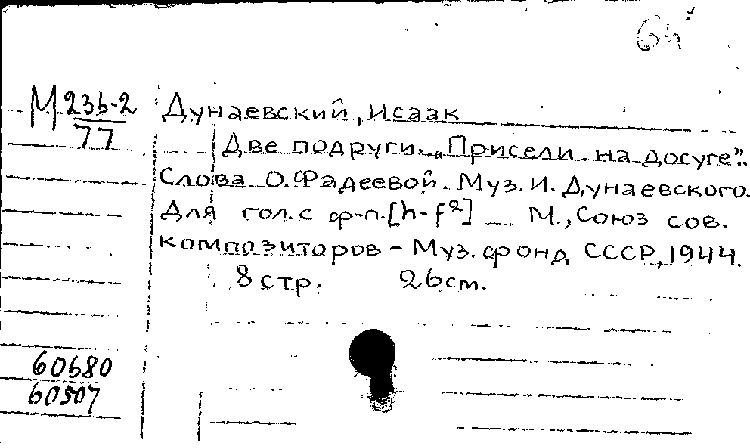 6н
М 23б-2
77
Дунаевский, Исаак
Две подруги. „Присели на досуге".
Слова О. Фадеевой. Муз. И. Дунаевского.
Для гол. с ф-п. [h-f²] — М., Союз сов.
композиторов - Муз. фонд СССР, 1944.
8 стр. 26 см.
60680
60507